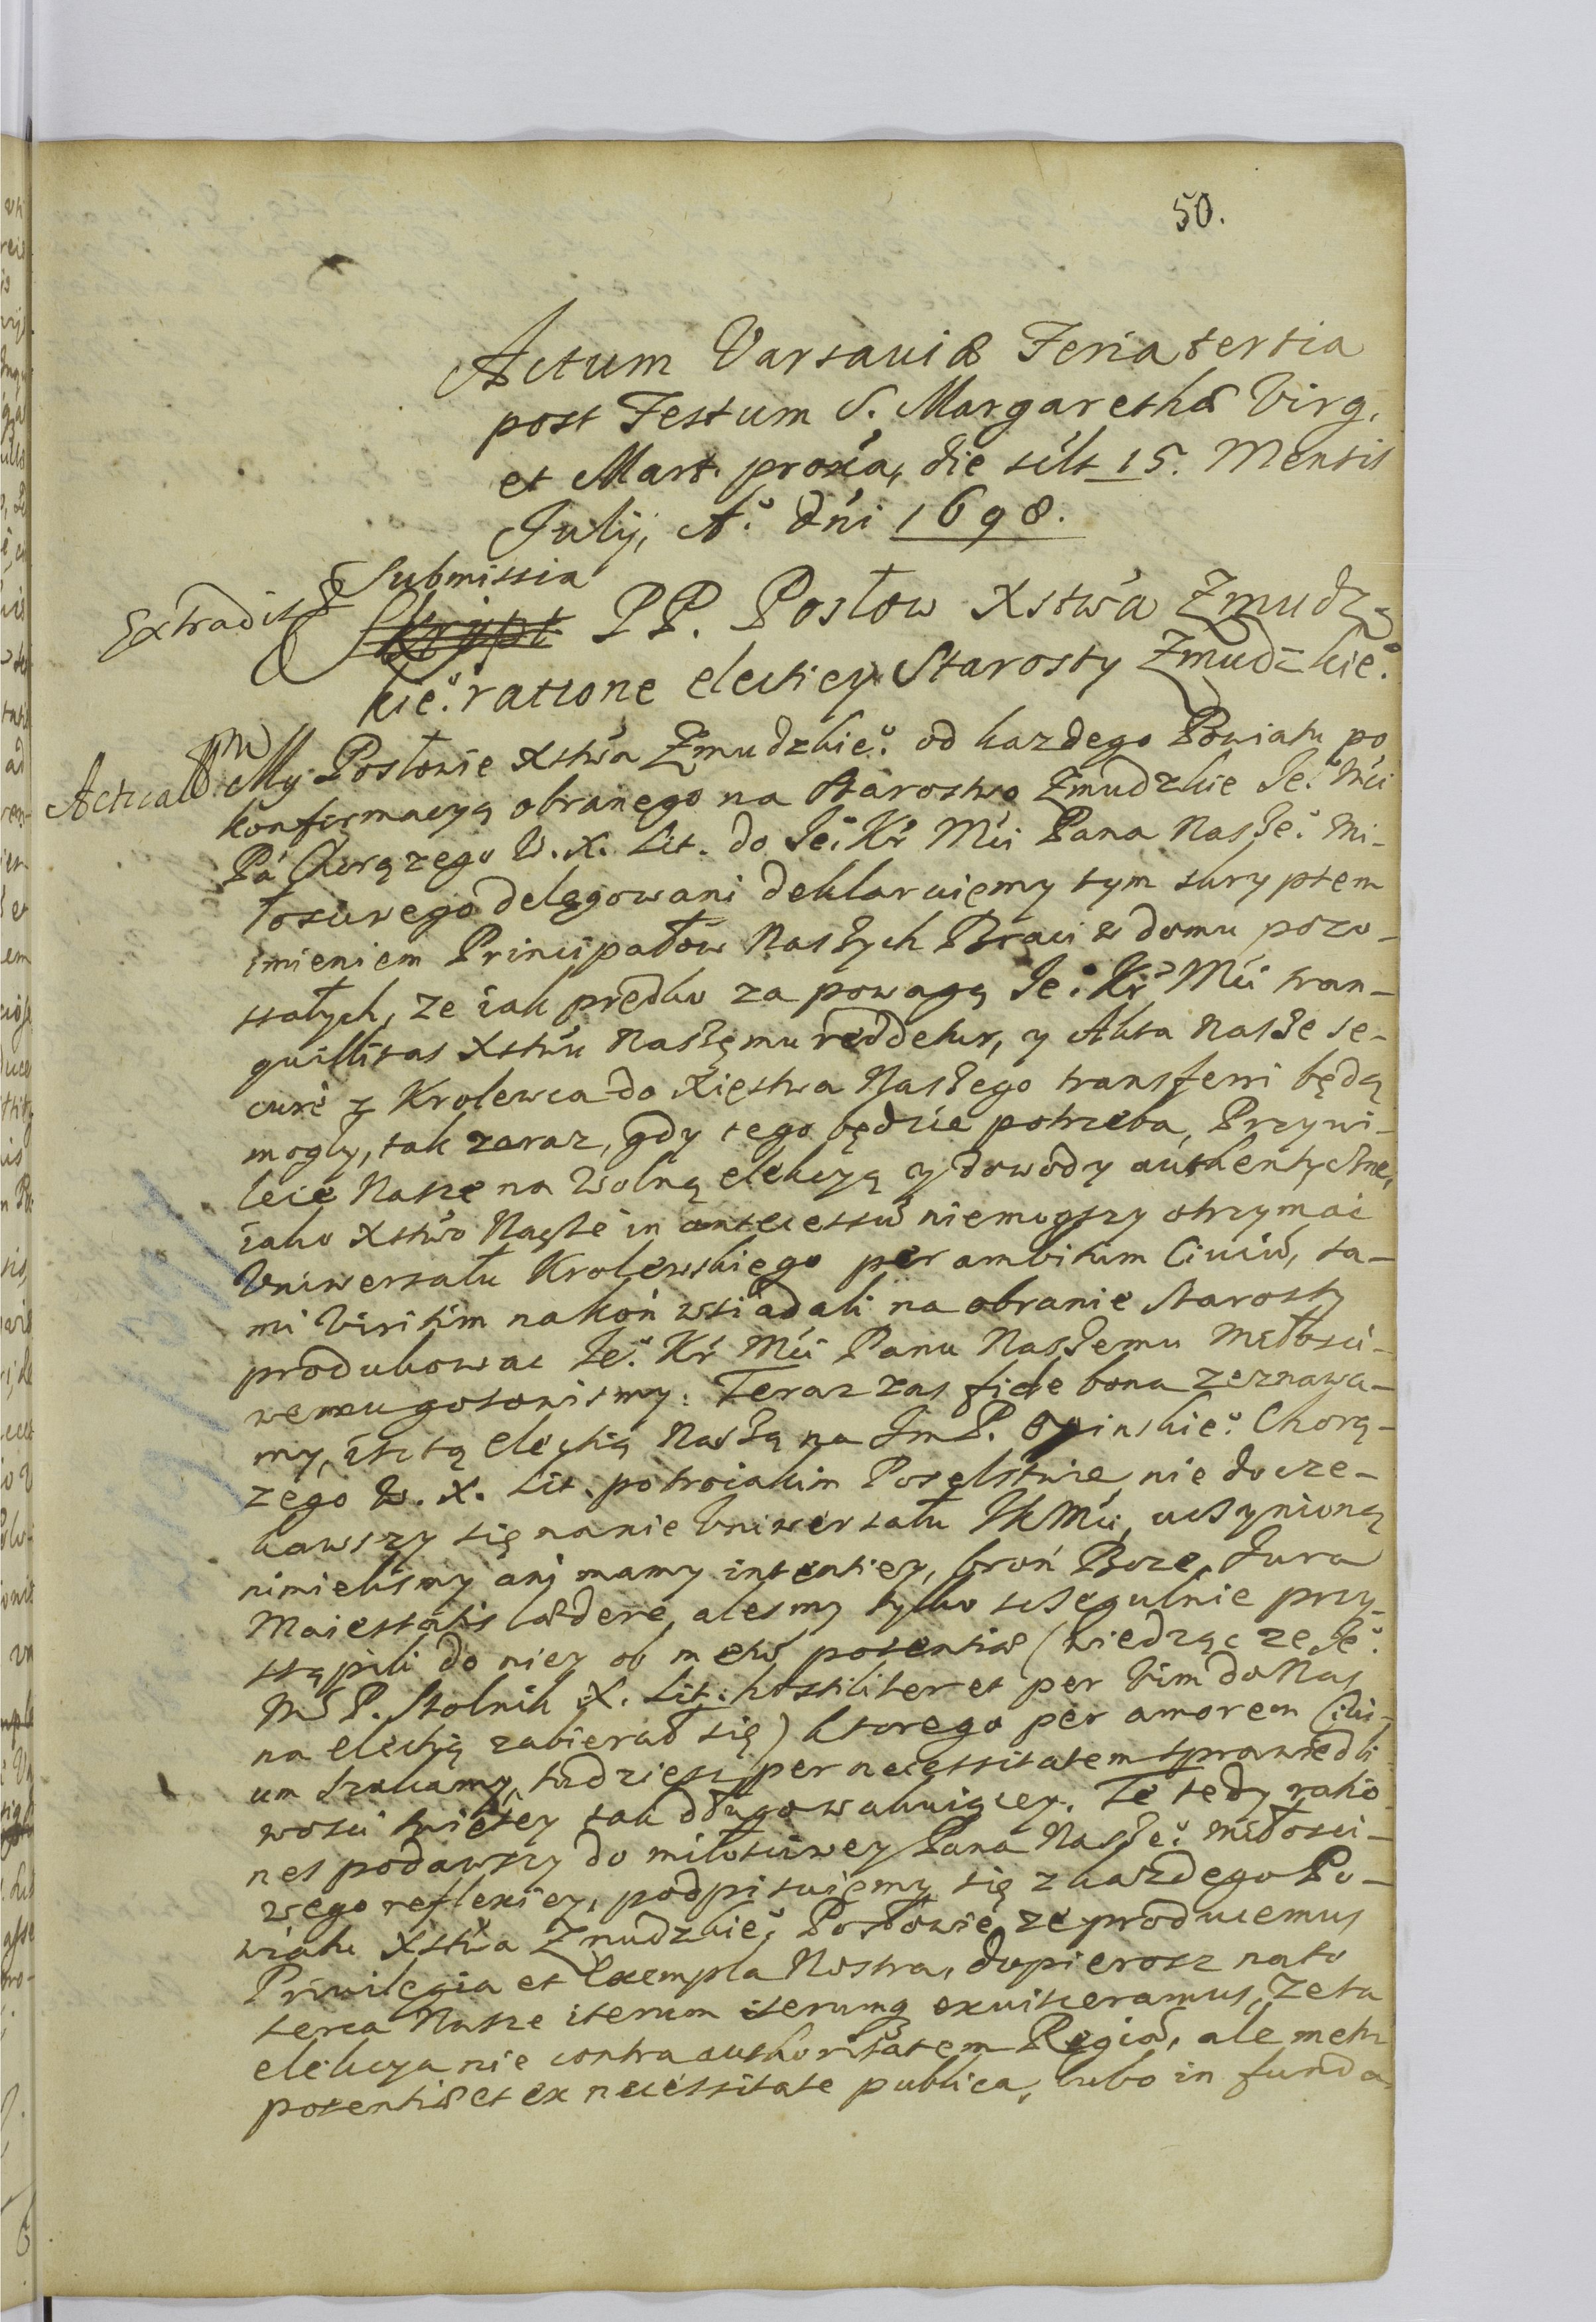 50.
Actum Varsaviæ Feria tertia
post Festum S. Margarethæ Virg.
et Mart. proxa, die silt 15. Mensis
July, Aº dni 1698.
Submissia
Extradit
Skrypt PP. Posłow Xstwa Zmudz
kieº ratione electiey Starosty Zmudzkieº.
Acticat. My Posłowie Xstwa Zmudzkieº od kazdego Powiatu po
konfirmacyą obranego na Starostwo Zmudzkie Jeº Mci
Pa Chorązego W. X. Lit. do Jeº Kr Mci Pana Nasseº Mi-
łosciwego delęgowani deklaruięmy tym skryptem
imieniem Principałow Naszych Braci w domu pozo-
stałych, ze iak prędko za powagą Jeº Kr Mci tran-
quillitas Xstwu Naszęmu reddetur, y Akta Nasze se-
curè z Krolewca do Xięstwa Naszego transferri będą
mogły, tak zaraz, gdy tego będzie potrzeba, Przywi-
leie Nasze na Wolną elekcyą y dowody authentyczne,
iako Xstwo Nasze in antecessu niemogszy otrzymać
Uniwersału Krolewskiego per ambitum Civiũ, sa-
mi Viritim nakoń wsiadali na obranie Starosty
produkowac Jeº Kr Mci Panu Naszemu Miłosci-
wemu gotowismy. Teraz zas fide bona zeznawa-
my, isz tą electią Naszą na JmP. Oginskieº Chorą-
zego W. X. Lit. potroiakim Poselstwie, nie docze-
kawszy się nanie Uniwersału JKMci, uczynioną
nimielismy ani mamy intentiey, broń Boze, Jura
Maiestatis lædere, alesmy tylko szczegulnie przy-
stąpili do niey ob metũ potentiæ (wiedząc ze Jeº
Mś P. Stolnik X. Lit. hostiliter et per Vim do Nas
na electią zabierał się) ktorego per amorem Civi-
um szukamy, tudziesz per necessitatem sprawiedli
wosci swiętey tak długo wakuiącey. Te tedy ratio
nes podawszy do miłosciwey Pana Nasseº Miłosci-
wego reflexiey, podpisuięmy się z kazdego Po-
wiatu Xstwa Zmudzkieº, Posłowie, ze producemus
Priwilegia et Exempla Nostra, dopierosz nato
serca Nasze iterum iterumq exvisceramus, Zeta
elekcya nie contra authoritatem Regiã, ale metu
potentiæ et ex necessitate publica, lubo in funda